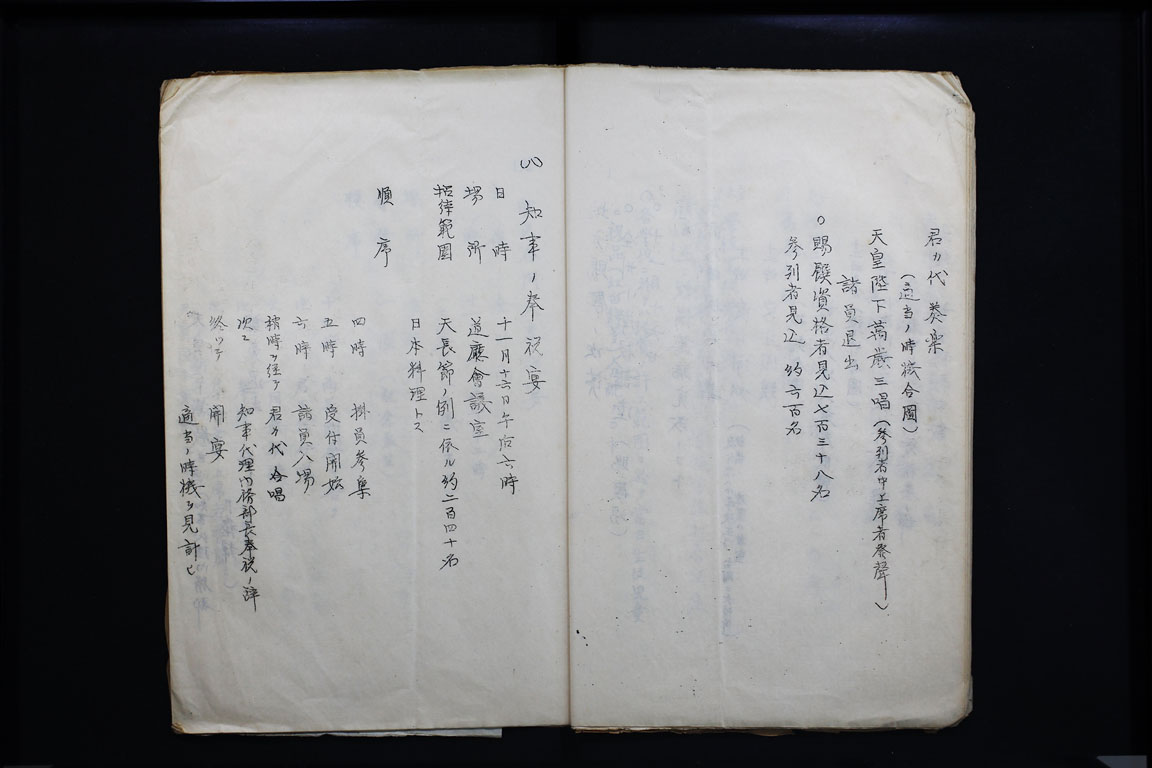 君カ代奏楽
(適当ノ時機合圖)
天皇陛下萬歳三唱(参列者中上席者発聲)
諸員退出
○賜饌資格者見込七百三十八名
参列者見込 約六百名
(八) 知事ノ奉祝宴
日時 十一月十六日午后六時
場所 道廳會議室
招待範圍 天長節ノ例ニ依ル約二百四十名
日本料理トス
順序 四時 掛員参集
五時 受付開始
六時 諸員入場
稍時ヲ経テ 君カ代合唱
次ニ 知事代理内務部長奉祝ノ辞
終ツテ 開宴
適当ノ時機ヲ見計ヒ